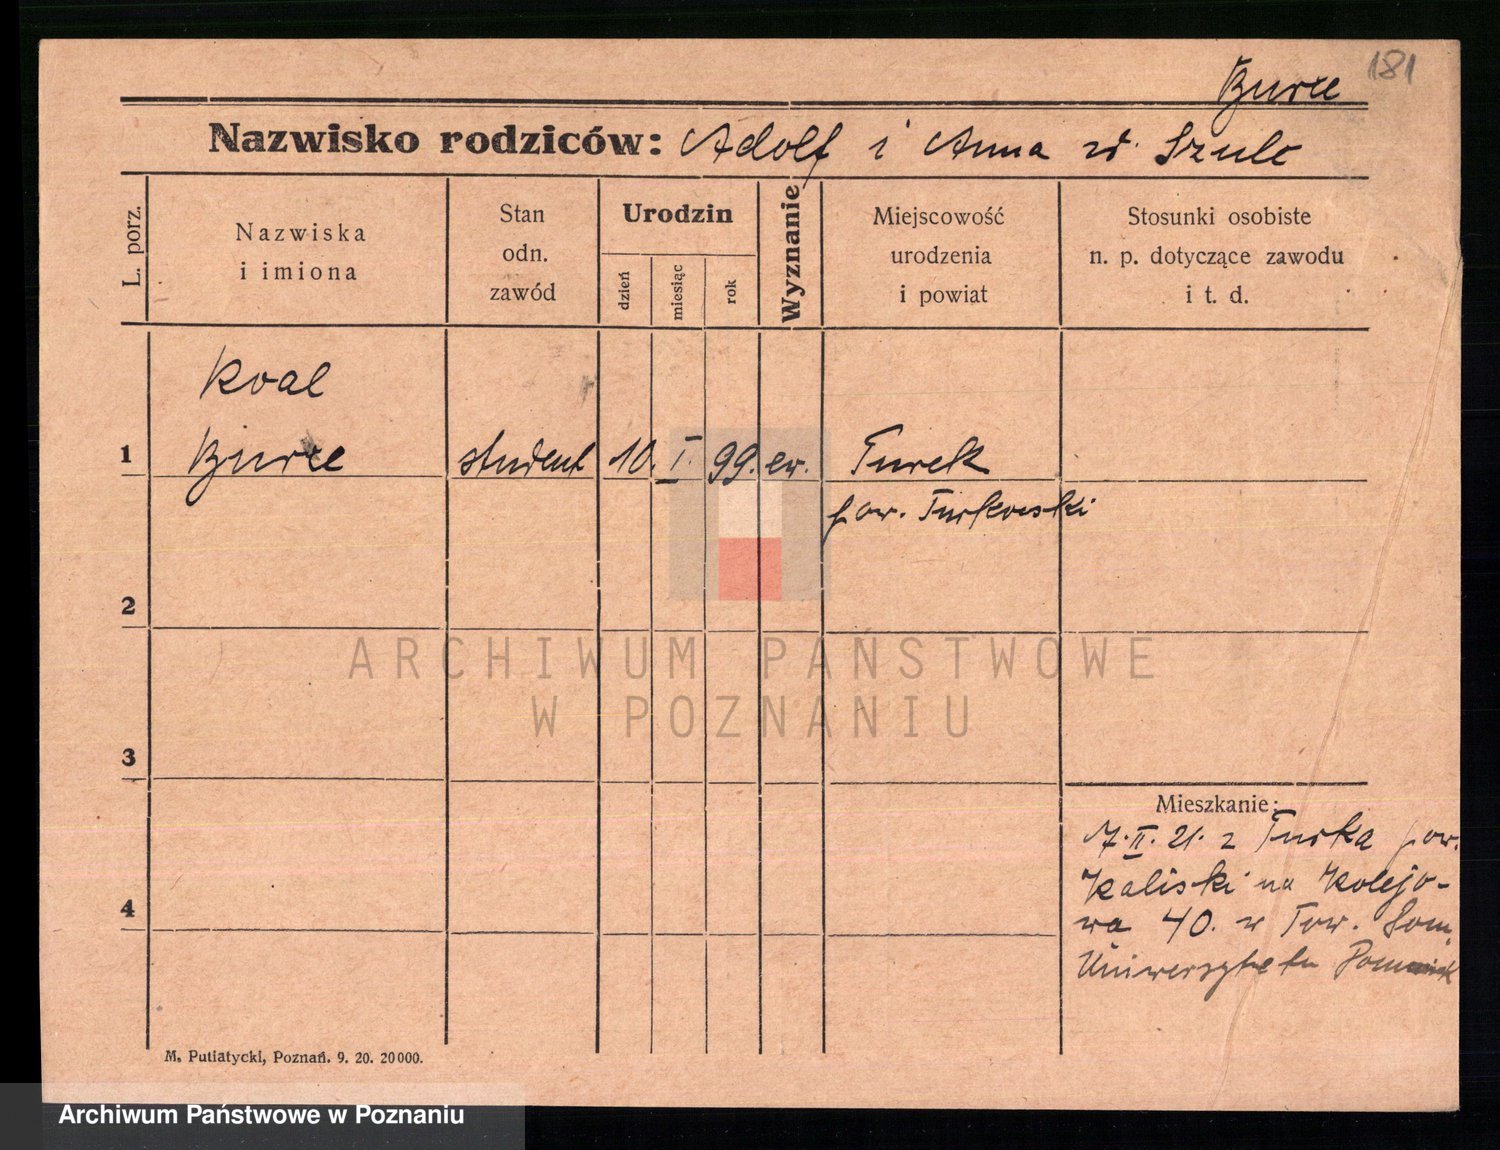 181
Burze
Nazwisko rodziców: Adolf i Anna zd. Szulc
L. porz.
Nazwiska
i imiona
Stan
odn.
zawód
Urodzin
dzień
miesiąc
rok
Wyznanie
Miejscowość
urodzenia
i powiat
Stosunki osobiste
n. p. dotyczące zawodu
i t. d.
1
Burze
student
10.
I.
99.
ew.
Turek
pow. Turkowski
2
ARCHIWUM PAŃSTWOWE
W POZNANIU
3
4
Mieszkanie:
7. II. 21. z Turka pow.
Kaliski na Kolejo-
wa 40. w Tow.
Uniwersytetu
M. Putiatycki, Poznań. 9. 20. 20000.
Archiwum Państwowe w Poznaniu